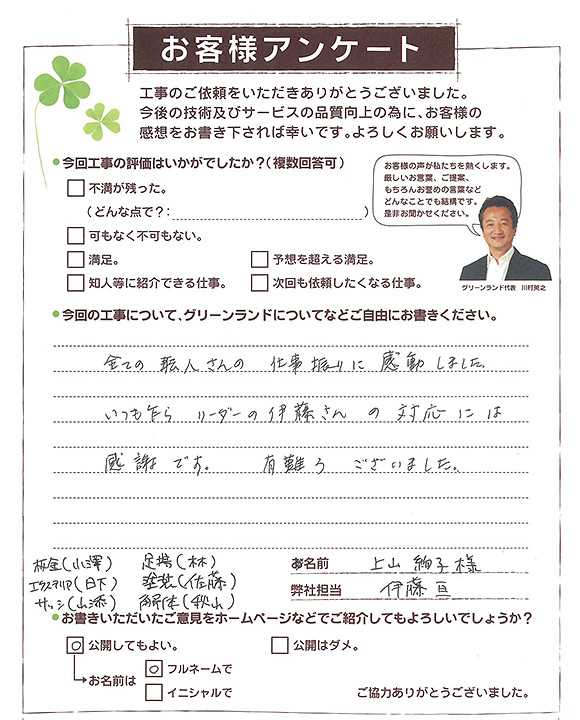 お客様アンケート
工事のご依頼をいただきありがとうございました。
今後の技術及びサービスの品質向上の為に、お客様の
感想をお書き下されば幸いです。よろしくお願いします。
今回工事の評価はいかがでしたか?(複数回答可)
不満が残った。
(どんな点で?: )
可もなく不可もない。
満足。 予想を超える満足。
知人等に紹介できる仕事。 次回も依頼したくなる仕事。
お客様の声が私たちを熱くします。
厳しいお言葉、ご提案、
もちろんお誉めの言葉など
どんなことでも結構です。
是非お聞かせください。
グリーンランド代表 川村英之
今回の工事について、グリーンランドについてなどご自由にお書きください。
全ての職人さんの 仕事振りに 感動しました。
いつも乍ら リーダーの伊藤さん の 対応には
感謝です。 有難う ございました。
板金(小澤) 足場(林)
エクステリア(日下) 塗装(佐藤)
サッシ(山添) 解体(秋山)
お名前 上山 絢子 様
弊社担当 伊藤 亘
お書きいただいたご意見をホームページなどでご紹介してもよろしいでしょうか?
○ 公開してもよい。 公開はダメ。
お名前は ○ フルネームで
イニシャルで
ご協力ありがとうございました。